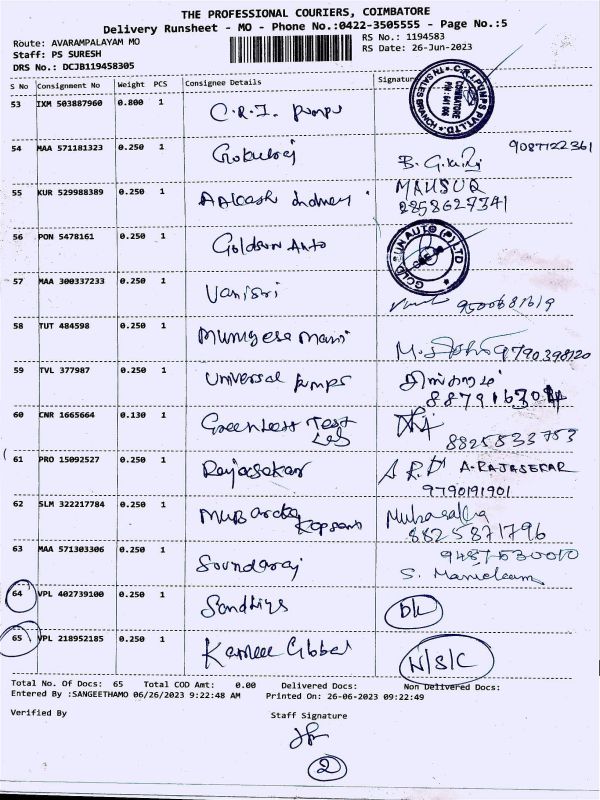 THE PROFESSIONAL COURIERS, COIMBATORE
Delivery Runsheet - MO - Phone No.:0422-3505555 - Page No.:5
Route: AVARAMPALAYAM MO
RS No.: 1194583
Staff: PS SURESH
RS Date: 26-Jun-2023
DRS No.: DCJB119458305
S No Consignment No Weight PCS Consignee Details Signature
53 IXM 503887960 0.800 1 C.R.I. Pumps
C.R.I. PUMPS PVT LTD. COIMBATORE 641 006
54 MAA 571181323 0.250 1 Gokulraj B. 9087122361
55 KUR 529988389 0.250 1 Aakash
2858627341
56 PON 5478161 0.250 1 Goldsun Auto GOLD SUN AUTO (P) LTD
57 MAA 300337233 0.250 1 Vanisri 9500681619
58 TUT 484598 0.250 1 Murugesa Mani M. 9790398120
59 TVL 377987 0.250 1 Universal Pumps
60 CNR 1665664 0.130 1 Greentest Test
Lab 8825833753
61 PRO 15092527 0.250 1 Rajasekar A. RAJASEKAR
9790191901
62 SLM 322217784 0.250 1 Mubarak
8825871796
63 MAA 571303306 0.250 1 Soundaraj
S. Manickam
64 VPL 402739100 0.250 1 Sandhiya DK
65 VPL 218952185 0.250 1 N/S/C
Total No. Of Docs: 65 Total COD Amt: 0.00 Delivered Docs: Non Delivered Docs:
Entered By :SANGEETHAMO 06/26/2023 9:22:48 AM Printed On: 26-06-2023 09:22:49
Verified By Staff Signature
2